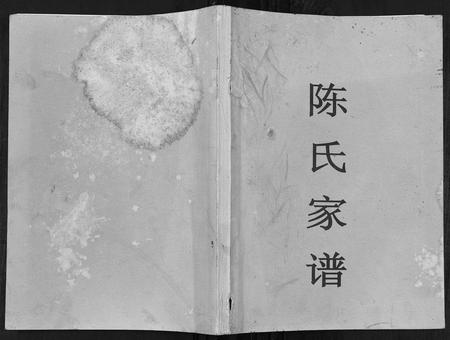 陈氏家谱